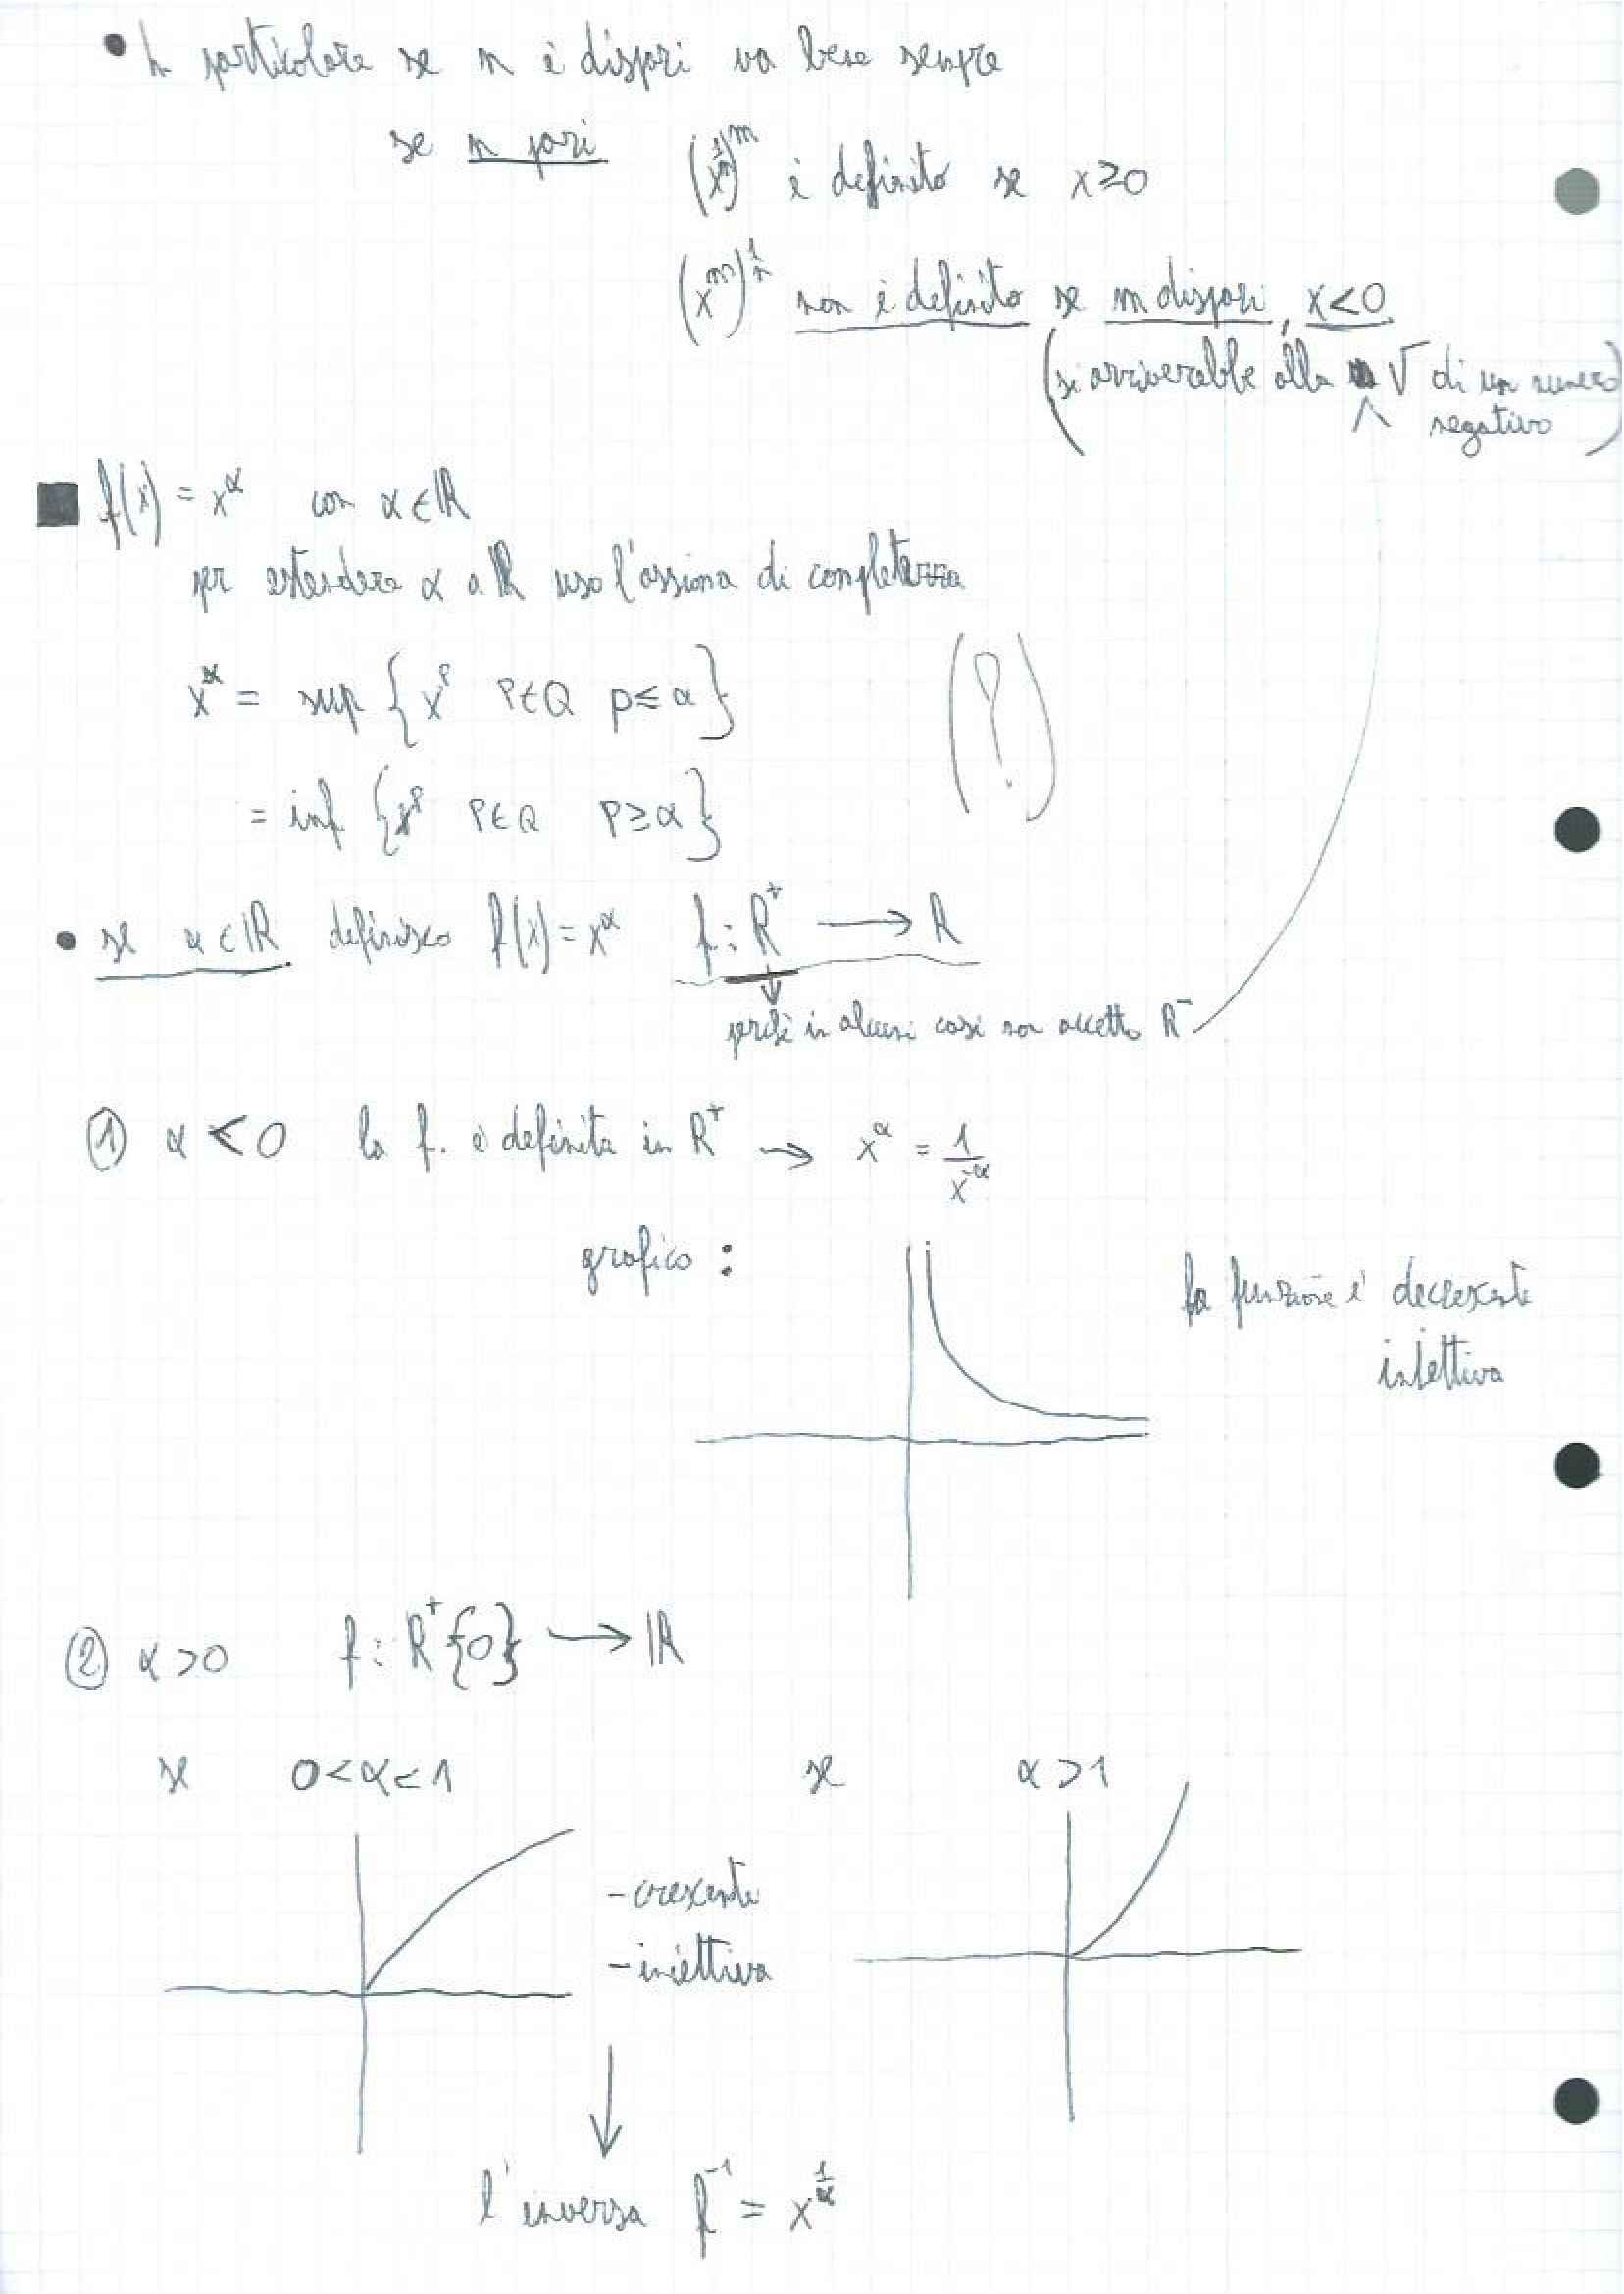 • In particolare se n è dispari va bene sempre
se n pari (x^{1/n})^m è definito se x≥0
(x^m)^{1/n} non è definito se m dispari, x<0
(si arriverebbe alla √ di un numero
negativo)
f(x) = x^α con α∈ℝ
per estendere α a ℝ uso l'assioma di completezza
x^α = sup { x^p p∈Q p≤α }
(?)
= inf { x^p p∈Q p≥α }
• se α∈ℝ definisco f(x)=x^α f: R⁺ → R
↓
perché in alcuni casi non accetto R⁻
① α<0 la f. è definita in R⁺ → x^α = 1/x^{-α}
grafico :
la funzione è decrescente
iniettiva
② α>0 f: R⁺{0} → ℝ
se 0<α<1 se α>1
- crescente
- iniettiva
↓
l'inversa f⁻¹ = x^{1/α}